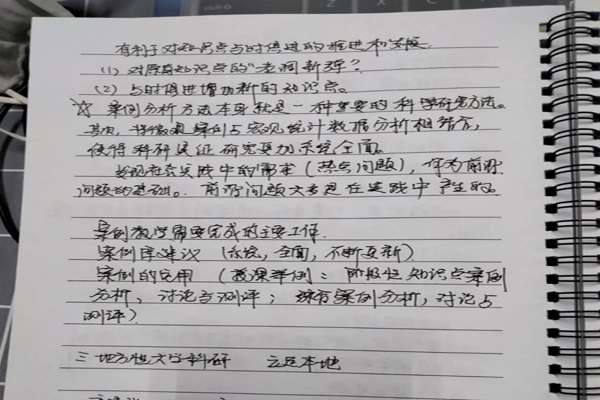 有利于对知识点与时俱进的推进和发展.
(1) 对原有知识点的“老调新弹”?
(2) 与时俱进增加新的知识点。
☆ 案例分析方法本身就是一种重要的科学研究方法。
其次, 案例与宏观统计数据分析相结合,
使得科研实证研究更加系统全面。
实践中的需求 (热点问题), 作为前沿
问题的基础。前沿问题大都是在实践中产生的.
案例教学需要完成的主要工作.
案例库建议 (全面, 不断更新)
案例的应用 (授课举例: 阶段性知识点案例
分析、讨论与测评; 综合案例分析, 讨论与
测评)
三 地方性大学科研 立足本地